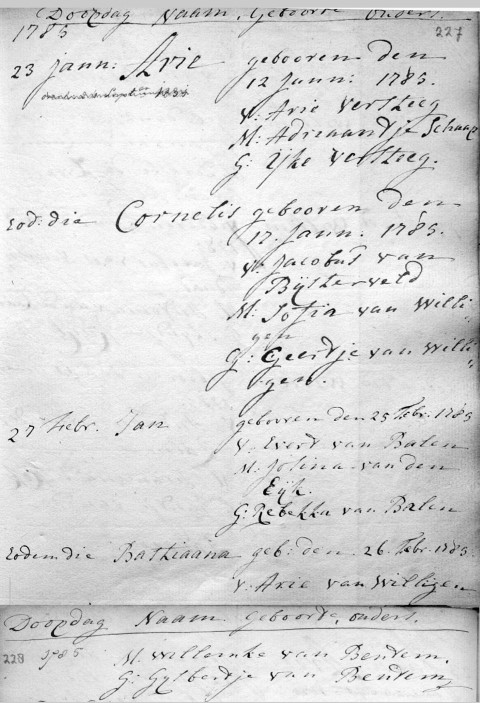 Doopdag Naam, Geboorte ouders.
1785 227
23 Jann: Arie gebooren den
12 Jann: 1785.
V: Arie Versteeg
M: Adriaantje Schaap
G: Ijke Versteeg.
Eod: die Cornelis gebooren den
17. Jann. 1785.
V: Jacobus van
Bijsterveld
M: Sofia van Willi„
gen
G: Geertje van Willi„
gen.
27 Febr. Jan gebooren den 25 Febr. 1785
V. Evert van Balen
M: Jolina van den
Eijk.
G: Rebekka van Balen
Eodem die Bastiaana geb: den 26. Febr. 1785.
V: Arie van Willigen
Doopdag Naam Geboorte, ouders.
228 1785 M. Willemke van Bentem.
G: Gijsbertje van Bentem